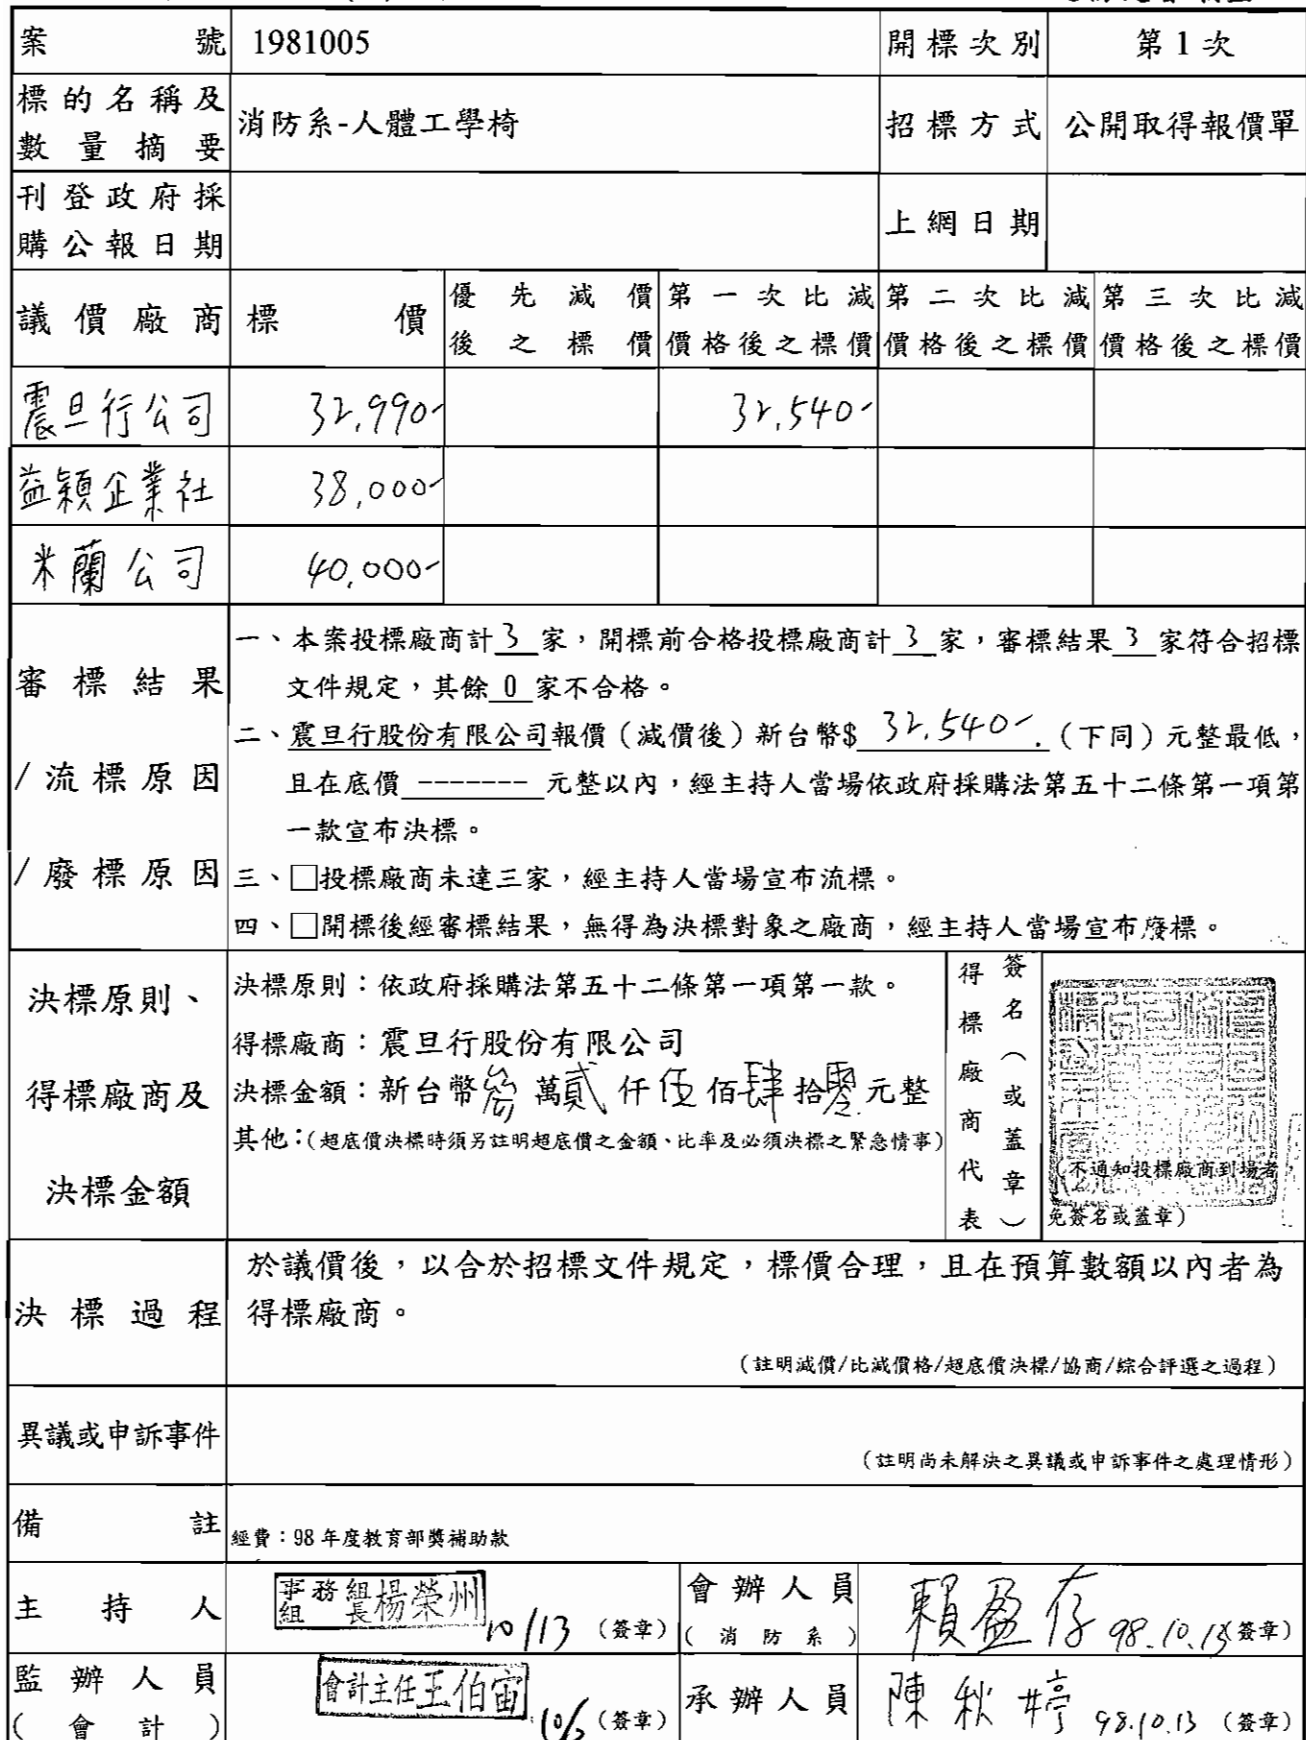 案號 1981005 開標次別 第1次
標的名稱及數量摘要 消防系-人體工學椅 招標方式 公開取得報價單
刊登政府採購公報日期 上網日期
議價廠商 標價 優先減價後之標價 第一次比減價格後之標價 第二次比減價格後之標價 第三次比減價格後之標價
震旦行公司 32,990- 32,540-
益穎企業社 38,000-
米蘭公司 40,000-
審標結果/流標原因/廢標原因
一、本案投標廠商計 3 家，開標前合格投標廠商計 3 家，審標結果 3 家符合招標
文件規定，其餘 0 家不合格。
二、震旦行股份有限公司報價（減價後）新台幣$ 32,540-.（下同）元整最低，
且在底價 ------- 元整以內，經主持人當場依政府採購法第五十二條第一項第
一款宣布決標。
三、□投標廠商未達三家，經主持人當場宣布流標。
四、□開標後經審標結果，無得為決標對象之廠商，經主持人當場宣布廢標。
決標原則、得標廠商及決標金額
決標原則：依政府採購法第五十二條第一項第一款。
得標廠商：震旦行股份有限公司
決標金額：新台幣參萬貳仟伍佰肆拾零元整
其他：(超底價決標時須另註明超底價之金額、比率及必須決標之緊急情事)
得標廠商代表簽名（或蓋章）
（不通知投標廠商到場者
免簽名或蓋章）
決標過程
於議價後，以合於招標文件規定，標價合理，且在預算數額以內者為
得標廠商。
（註明減價/比減價格/超底價決標/協商/綜合評選之過程）
異議或申訴事件
（註明尚未解決之異議或申訴事件之處理情形）
備註 經費：98 年度教育部獎補助款
主持人 事務組組長楊榮州 10/13 （簽章） 會辦人員（消防系） 賴盈存 98.10.13（簽章）
監辦人員（會計） 會計主任王伯宙 （簽章） 承辦人員 陳秋婷 98.10.13 （簽章）